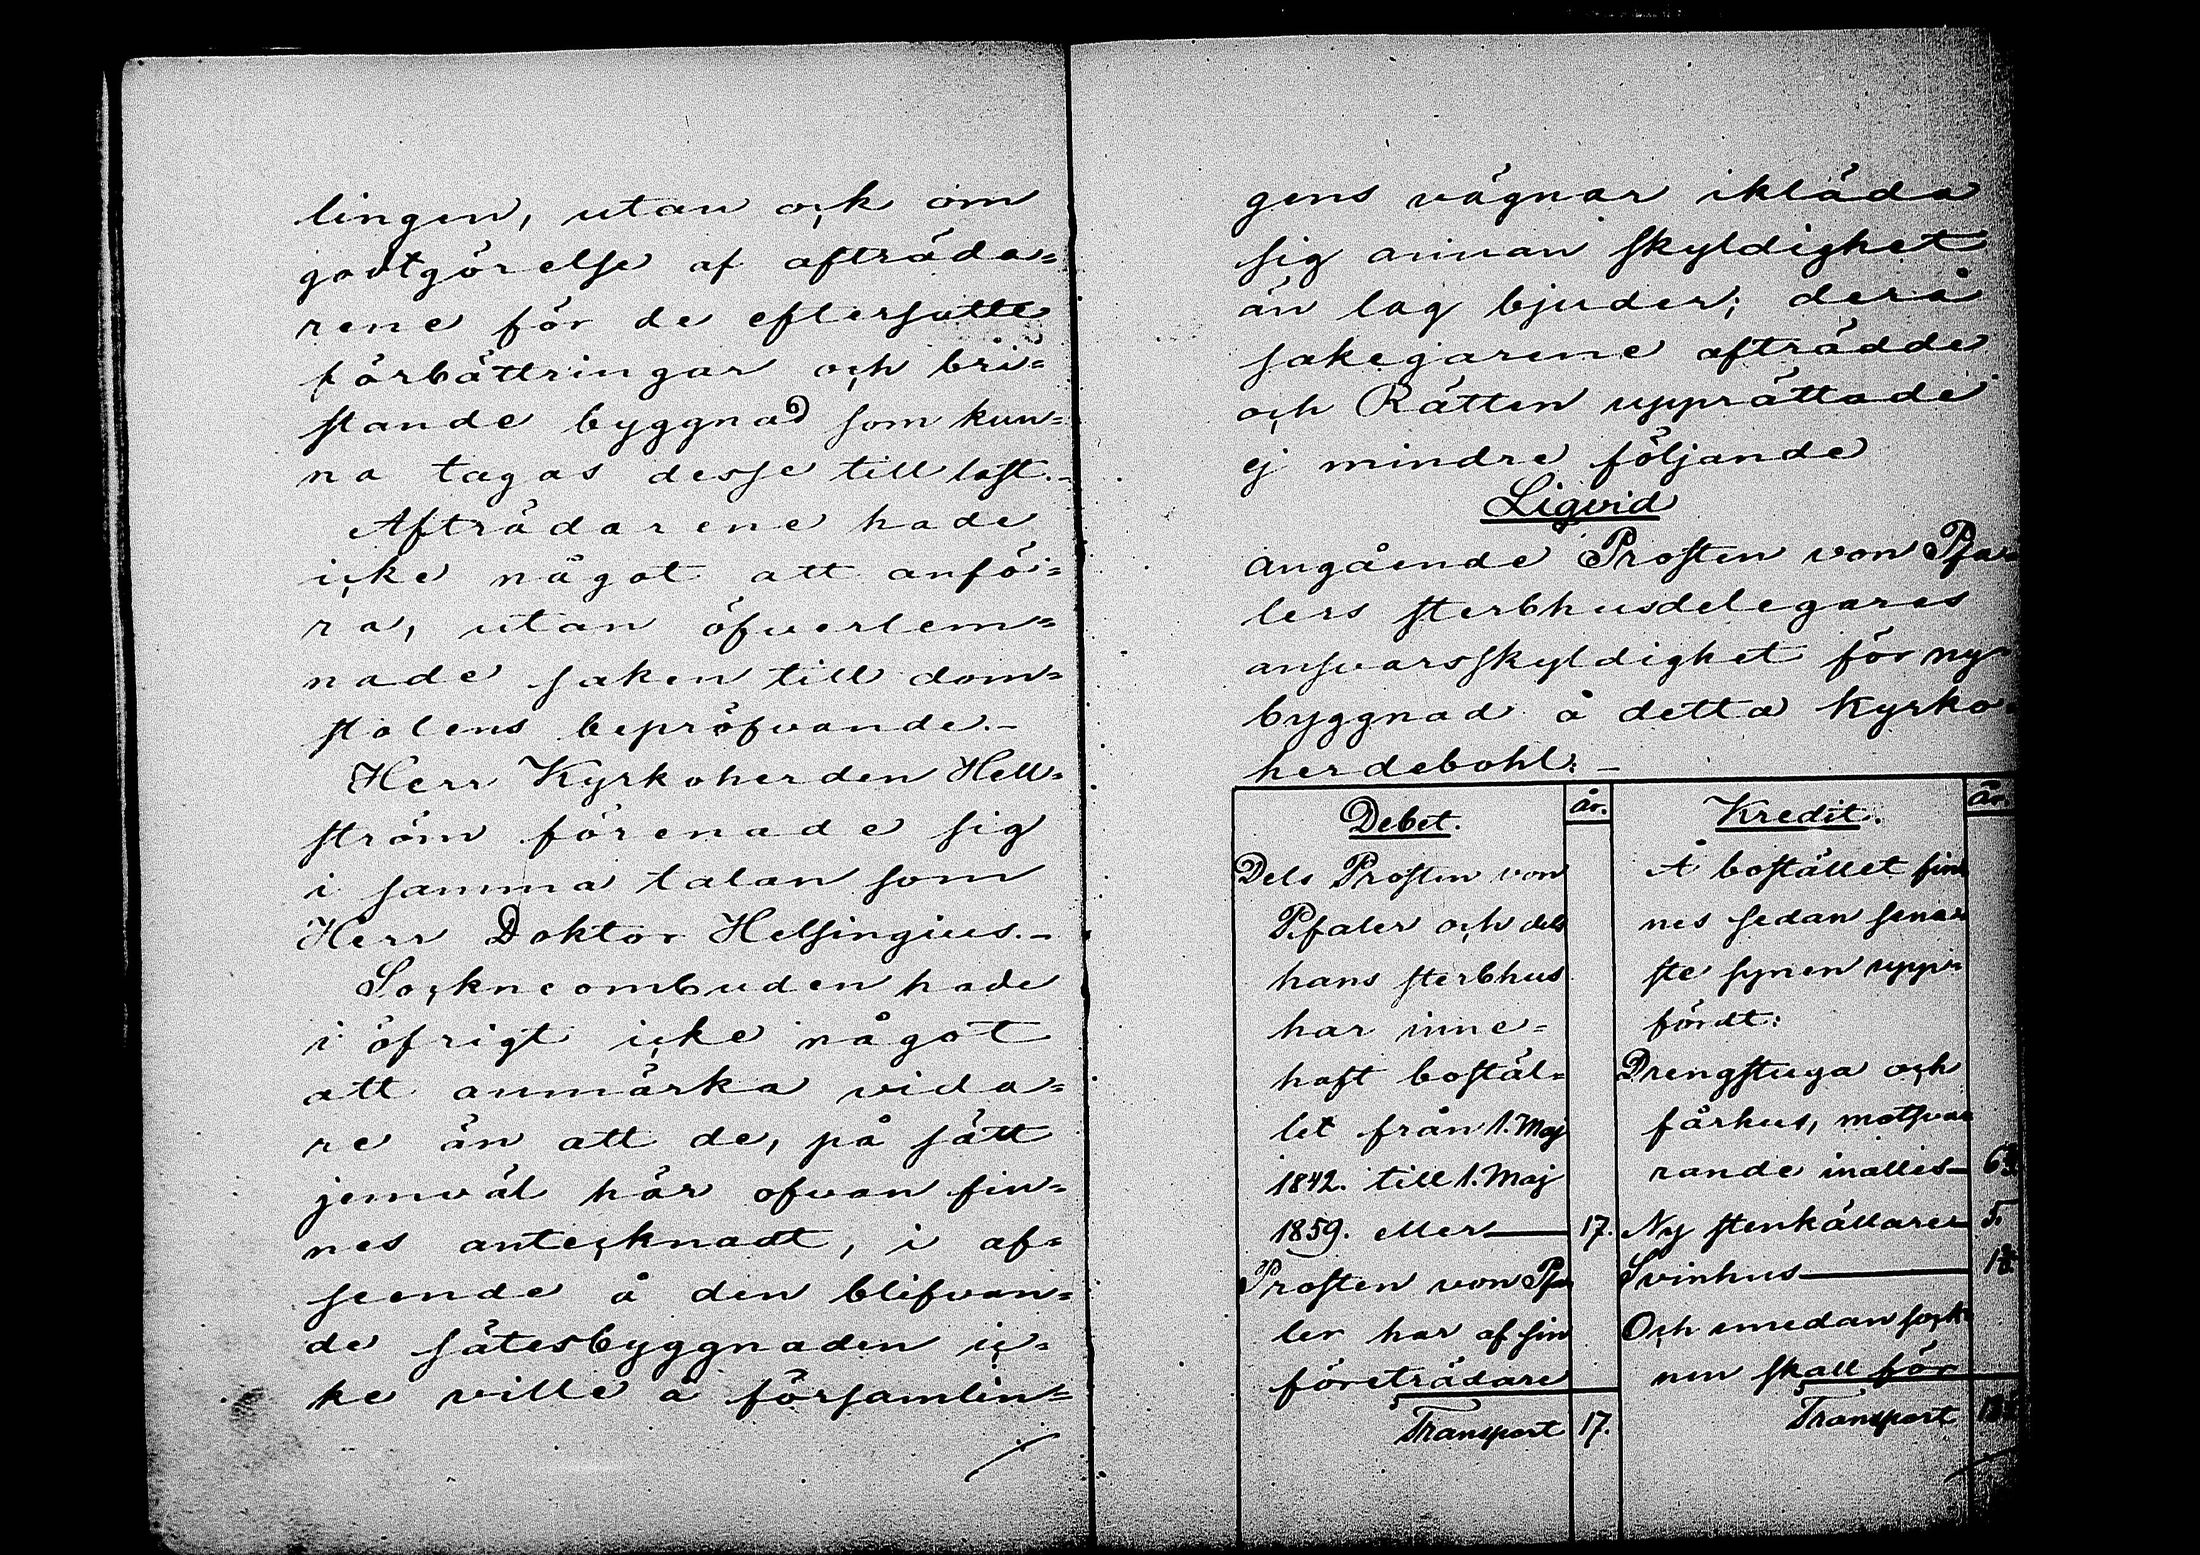 lingen, utan ock om
godtgörelse af afträda=
rene för de eftersatte
förbättringar och bri=
stande byggnad som kun=
na tagas desse till last.–
Afträdarene hade
icke något att anfö=
ra, utan öfverlem=
nade saken till dom=
stolens bepröfvande.–
Herr Kyrkoherden Hell=
ström förenade sig
i samma talan som
Herr Doktor Helsingius.–
Sockneombuden hade
i öfrigt icke något
att anmärka vida=
re än att de, på sätt
jemväl här ofvan fin=
nes antecknadt, i af=
seende å den blifvan=
de sätesbyggnaden ic=
ke ville å församlin=
gens vägnar ikläda
sig annan skyldighet
än lag bjuder; derå
sakegarene afträdde
och Rätten upprättade
ej mindre följande
Liqvid
angående Prosten von Pfa
lers sterbhusdelegares
ansvarsskyldighet för ny=
byggnad å detta Kyrko=
herdebohl:–
Debet. år.
Dels Prosten von
Pfaler och dels
hans sterbhus
har inne=
haft bostäl=
let från 1. Maj
1842. till 1. Maj
1859. eller— 17.
Prosten von Pfa
ler har af sin
företrädare
Transport 17.
Kredit. år.
Å bostället fin
nes sedan sena
ste synen upp
fördt:
Drengstuga och
fårhus, motsva
rande inalles—
Ny stenkällare— 5.
Svinhus—
Och emedan sock
nen skall för
Transport